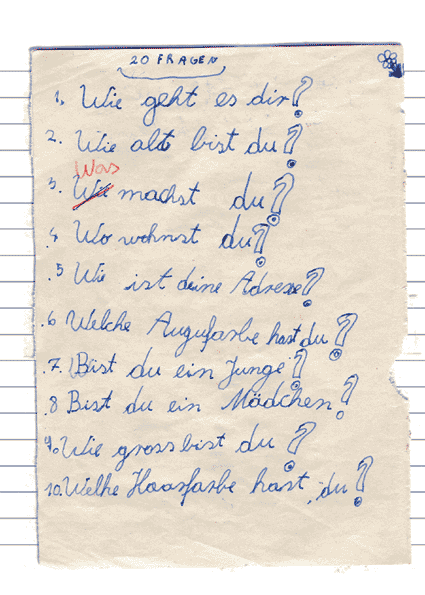 20 FRAGEN
1. Wie geht es dir?
2. Wie alt bist du?
Was
3. Wie machst du?
4. Wo wohnst du?
.5 Wie ist deine Adresse?
.6 Welche Augufarbe hast du?
.7. Bist du ein Junge?
.8 Bist du ein Mädchen?
9. Wie gross bist du?
10. Welhe Haarfarbe hast du?